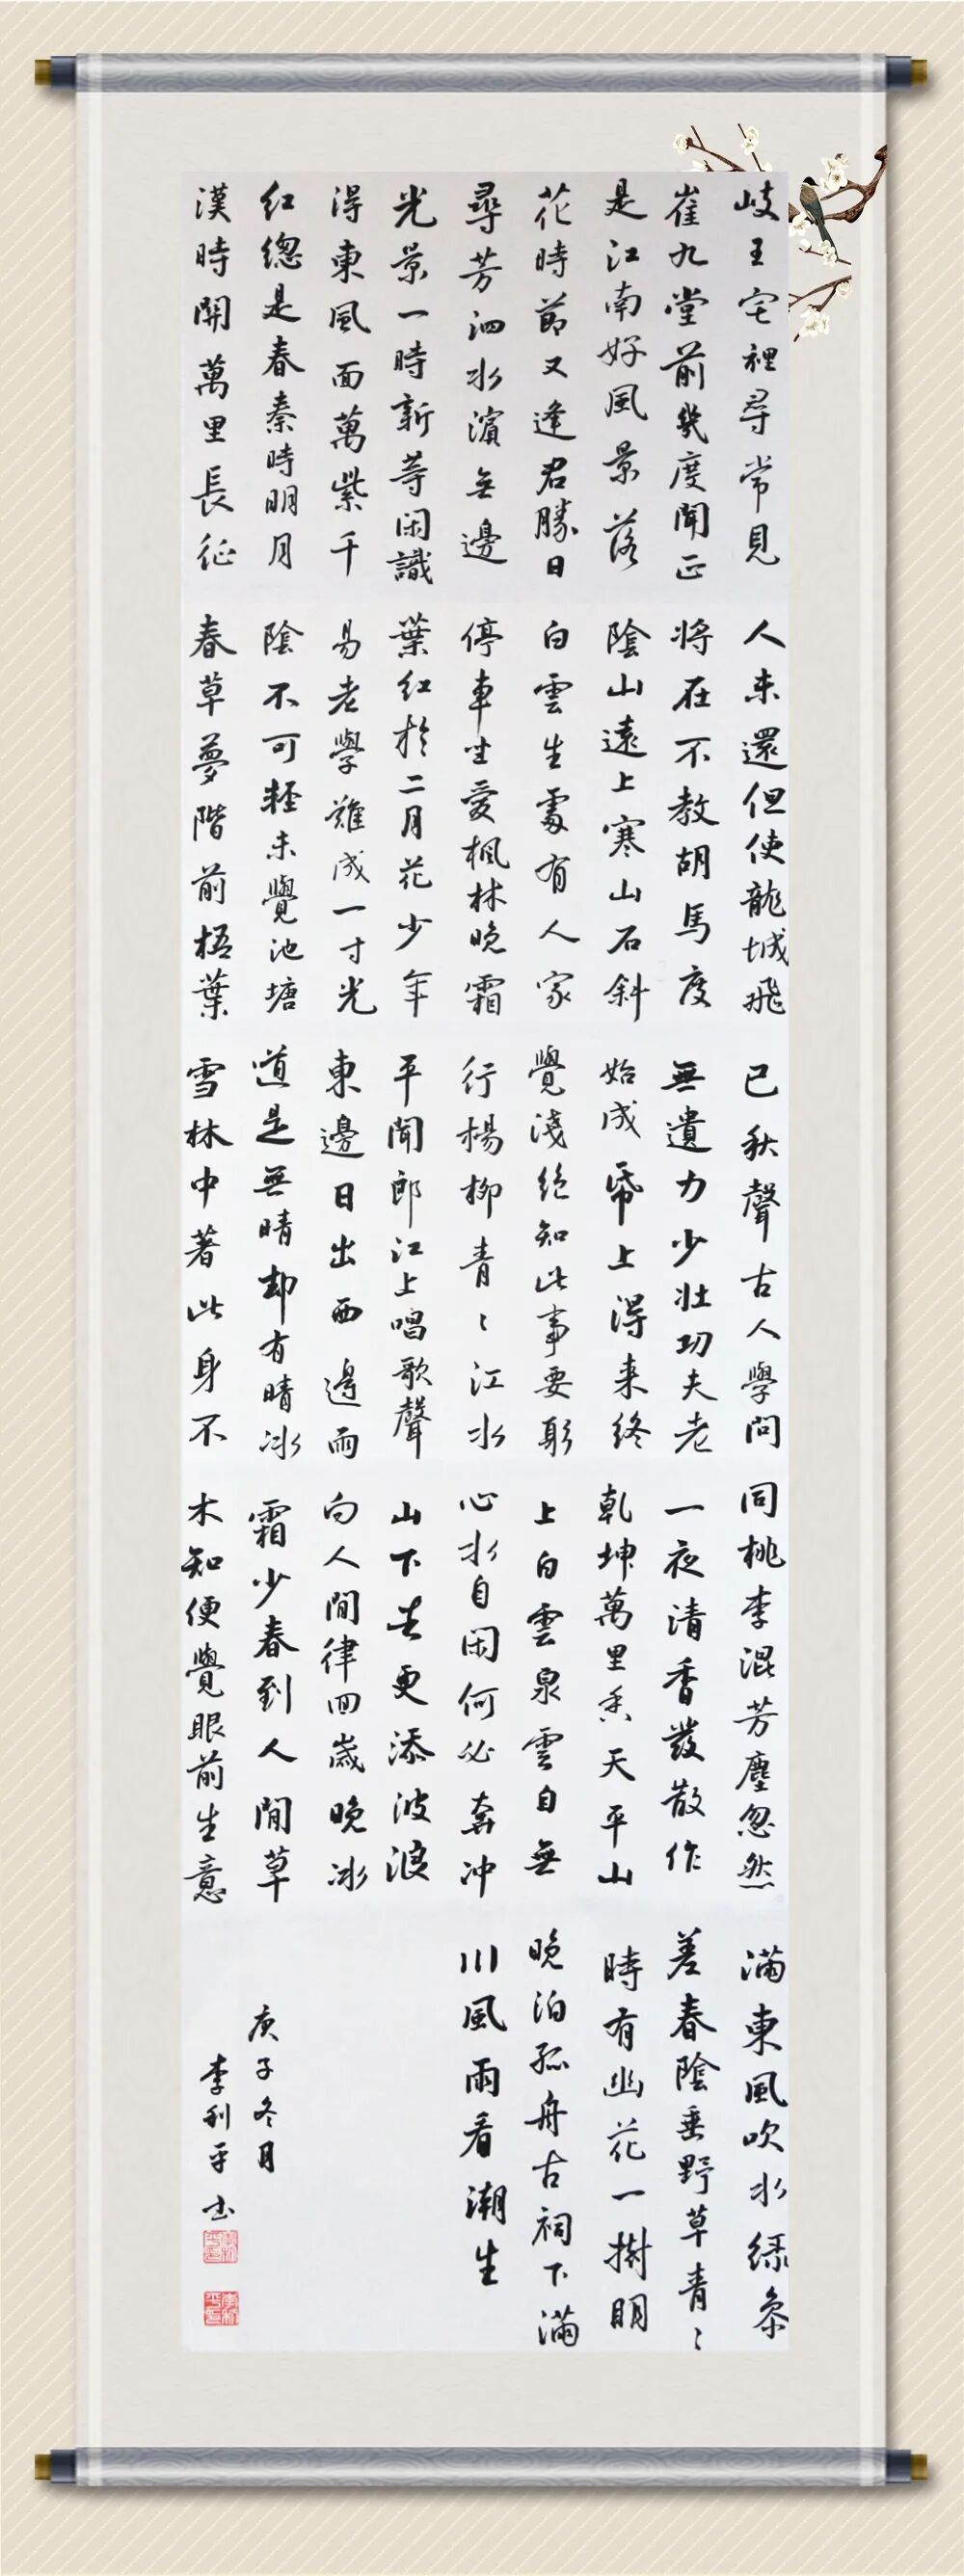 岐王宅裡尋常見
崔九堂前幾度聞正
是江南好風景落
花時節又逢君勝日
尋芳泗水濱無邊
光景一時新等閑識
得東風面萬紫千
紅總是春秦時明月
漢時關萬里長征
人未還但使龍城飛
將在不教胡馬度
陰山遠上寒山石斜
白雲生處有人家
停車坐愛楓林晚霜
葉紅於二月花少年
易老學難成一寸光
陰不可輕未覺池塘
春草夢階前梧葉
已秋聲古人學問
無遺力少壯功夫老
始成帋上得来終
覺淺絕知此事要躬
行楊柳青〻江水
平聞郎江上唱歌聲
東邊日出西邊雨
道是無晴却有晴冰
雪林中著此身不
同桃李混芳塵忽然
一夜清香發散作
乾坤萬里春天平山
上白雲泉雲自無
心水自閑何必奔冲
山下去更添波浪
向人間律回歲晚冰
霜少春到人間草
木知便覺眼前生意
滿東風吹水綠參
差春陰垂野草青〻
時有幽花一樹明
晚泊孤舟古祠下滿
川風雨看潮生
庚子冬月
李利平书